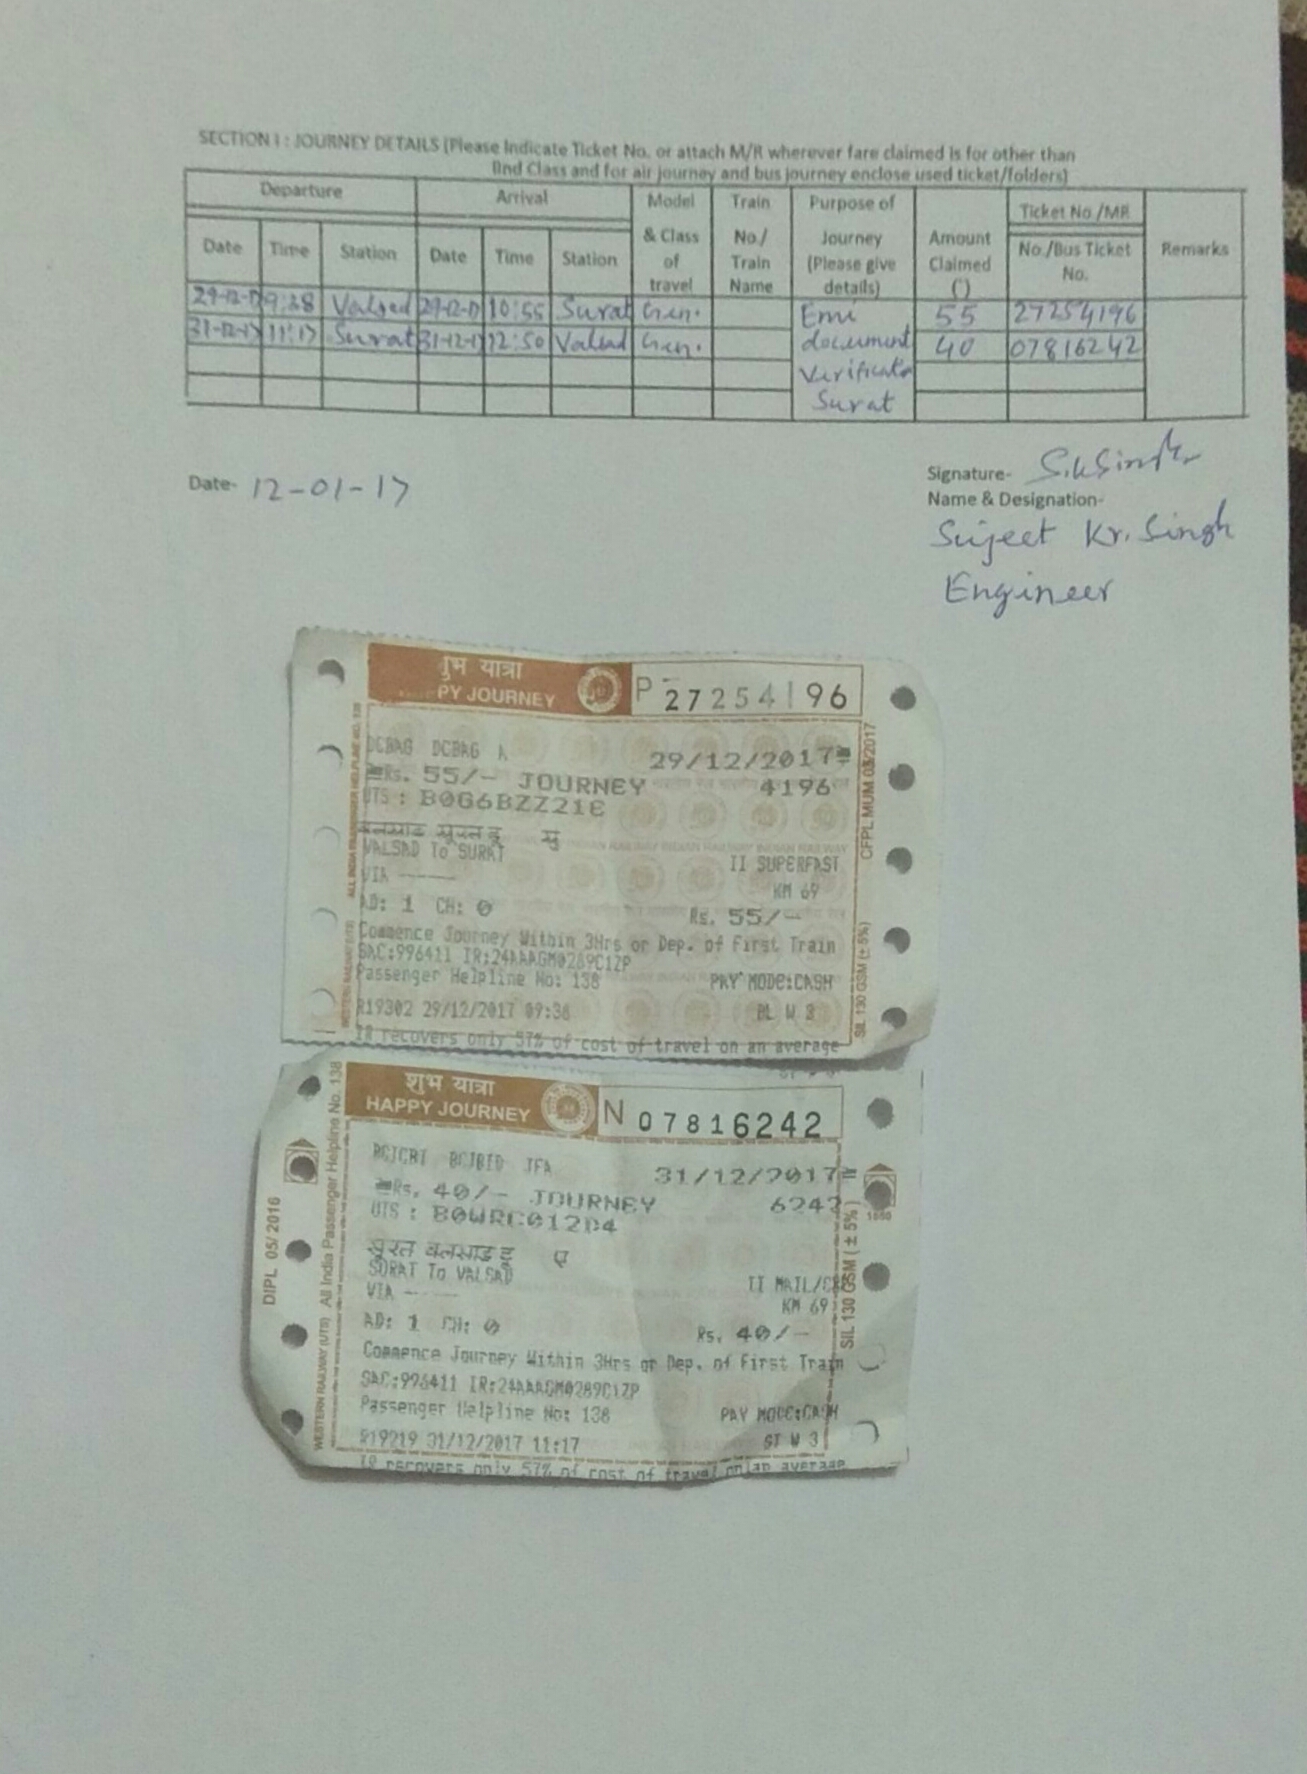 SECTION I : JOURNEY DETAILS (Please Indicate Ticket No. or attach M/R wherever fare claimed is for other than
IInd Class and for air journey and bus journey enclose used ticket/folders)
Departure Arrival Model & Class of travel Train No./ Train Name Purpose of Journey (Please give details) Amount Claimed (`) Ticket No./MR No./Bus Ticket No. Remarks
Date Time Station Date Time Station
29-12-17 9:38 Valsad 29-12-17 10:55 Surat Gen. Emi 55 27254196
31-12-17 11:17 Surat 31-12-17 12:50 Valsad Gen. document 40 07816242
Surat
Date- 12-01-17
Signature- S.K Singh
Name & Designation-
Sujeet Kr. Singh
Engineer
यात्रा
PY JOURNEY P 27254196
DCBAG DCBAG A 29/12/2017
Rs. 55/- JOURNEY 4196
UTS : B0G6BZZ21E
वलसाड सूरत
VALSAD To SURAT
II SUPERFAST
VIA -----
KM 69
AD: 1 CH: 0 Rs. 55/-
Commence Journey Within 3Hrs or Dep. of First Train
SAC:996411 IR:24AAAGM0289C1ZP
Passenger Helpline No: 138 PAY MODE:CASH
R19302 29/12/2017 09:38 BL W 3
IR recovers only 57% of cost of travel on an average
CFPL MUM 03/2017
SIL 130 GSM (± 5%)
शुभ यात्रा
HAPPY JOURNEY N 07816242
31/12/2017
Rs. 40/- JOURNEY 6242
UTS : B0WRC012D4
सूरत वलसाड
SURAT To VALSAD
II MAIL/EXP
VIA -----
KM 69
AD: 1 CH: 0 Rs. 40/-
Commence Journey Within 3Hrs or Dep. of First Train
SAC:996411 IR:24AAAGM0289C1ZP
Passenger Helpline No: 138 PAY MODE:CASH
R19219 31/12/2017 11:17 ST W 3
IR recovers only 57% of cost of travel on an average
DIPL 05/2016
WESTERN RAILWAY (UTS) All India Passenger Helpline No. 138
SIL 130 GSM ( ± 5%)